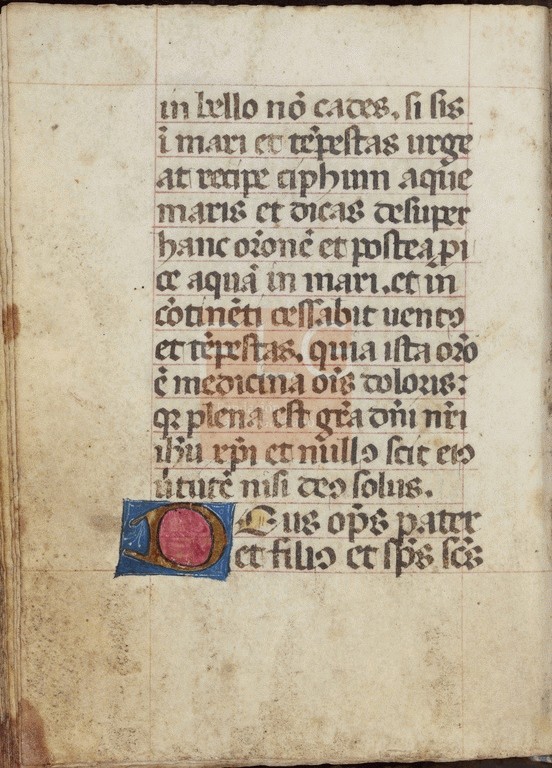 in bello nō cades. si sis
ī mari et tēpestas urge
at recipe ciphum aque
maris et dicas desuper
hanc orōnē et postea ꝓi
ce aquā in mari. et in
cōtinēti cessabit uentꝰ
et tēpestas. quia ista orō
ē medicina oīs doloris:
qꝛ plena est grā dn̄i nr̄i
ihū xp̄i et nullꝰ scit eiꝰ
uītutē nisi deꝰ solus.
Deus op̄s pater
et filiꝰ et sp̄s sc̄s